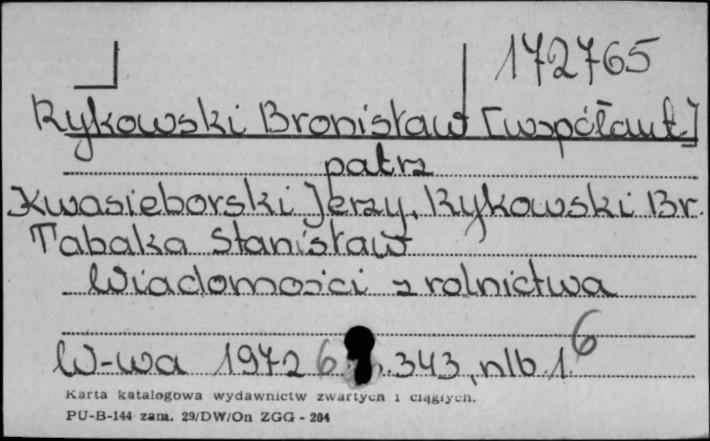 172765
Rykowski Bronisław [współaut.]
patrz
Kwasieborski Jerzy, Rykowski Br.
Tabaka Stanisław
Wiadomości z rolnictwa
W-wa 1972 6 .343, nlb. 1. 6
Karta katalogowa wydawnictw zwartych i ciągłych.
PU-B-144 zam. 29/DW/On ZGG - 204